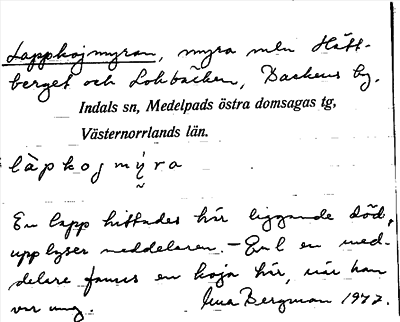 Lappkojmyran, myra mln Hätt-
berget och Lohbäcken, Backens by.
Indals sn, Medelpads östra domsagas tg,
Västernorrlands län.
làpkojmýra
En lapp hittades här liggande död,
upplyser meddelaren. – Enl en med-
delare fanns en koja här, när han
var ung. Bergman 1977.